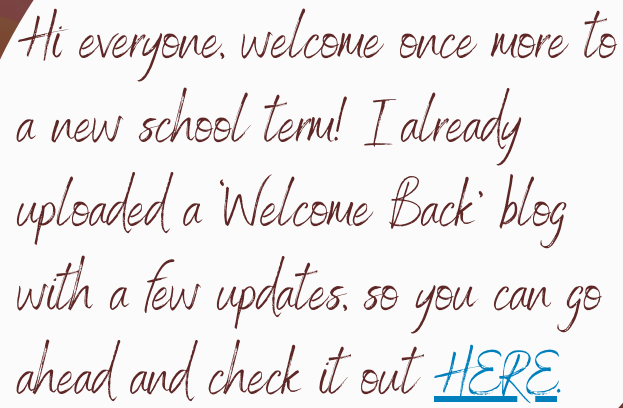 Hi everyone, welcome once more to
a new school term! I already
uploaded a 'Welcome Back' blog
with a few updates, so you can go
ahead and check it out HERE.